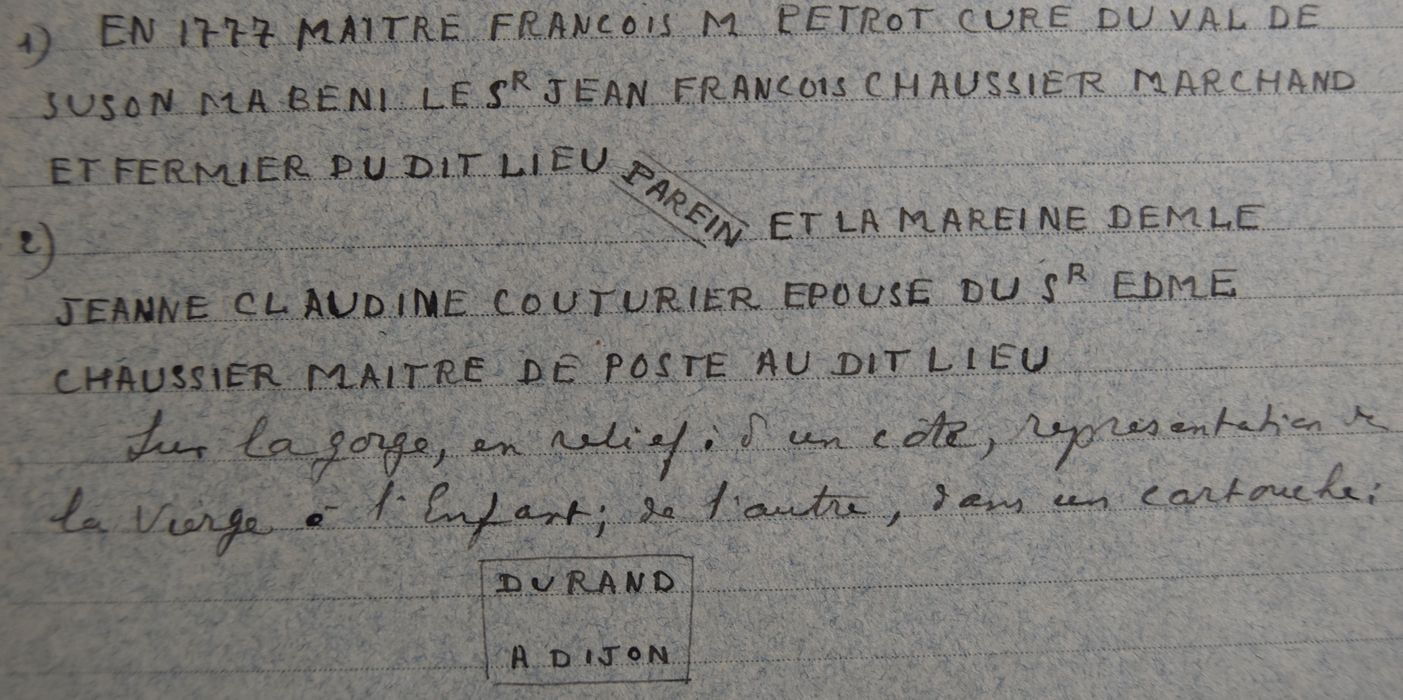 1) EN 1777 MAITRE FRANCOIS M PETROT CURE DU VAL DE
SUSON MA BENI LE SR JEAN FRANCOIS CHAUSSIER MARCHAND
ET FERMIER DU DIT LIEU
PAREIN
2) ET LA MAREINE DEMLE
JEANNE CLAUDINE COUTURIER EPOUSE DU SR EDME
CHAUSSIER MAITRE DE POSTE AU DIT LIEU
Sur la gorge, en relief : d'un côté, représentation de
la Vierge à l'Enfant; de l'autre, dans un cartouche :
DURAND
A DIJON